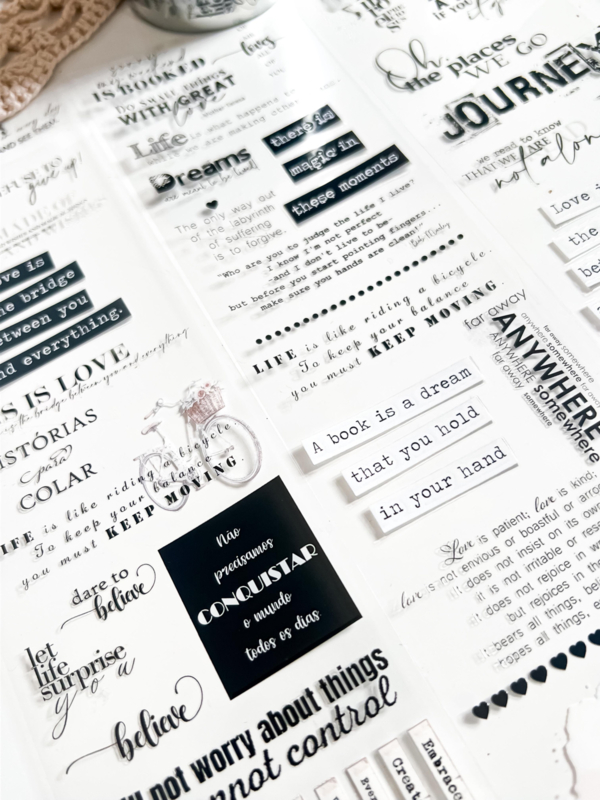 IS BOOKED
Do small things
WITH GREAT
love
Life is what happens to
while we are making other
Dreams
The only way out
of the labyrinth
of suffering
is to forgive.
there is
magic in
these moments
"Who are you to judge the life I live?
I know I'm not perfect
-and I don't live to be-
but before you start pointing fingers...
make sure you hands are clean!"
Bob Marley
LIFE is like riding a bicycle.
To keep your balance
you must KEEP MOVING.
A book is a dream
that you hold
in your hand
Oh,
the places
WE GO
JOURNEY
we need to know
THAT WE ARE
not alon
Love i
the
be
far away
ANYWHERE
somewhere
Love is patient; love is kind;
love is not envious or boastful or arro
it does not insist on its own
it is not irritable or res
it does not rejoice in w
but rejoices in th
bears all things, beli
hopes all things, e
give up!
ove is
he bridge
etween you
nd everything.
S IS LOVE
the bridge between you and everything
ISTÓRIAS
para
COLAR
IFE is like riding a bicycle.
To keep your balance
you must KEEP MOVING.
dare to
believe
let
life
surprise
you
believe
Não
precisamos
CONQUISTAR
o mundo
todos os dias
not worry about things
nnot control
Ever
Creat
Embrac